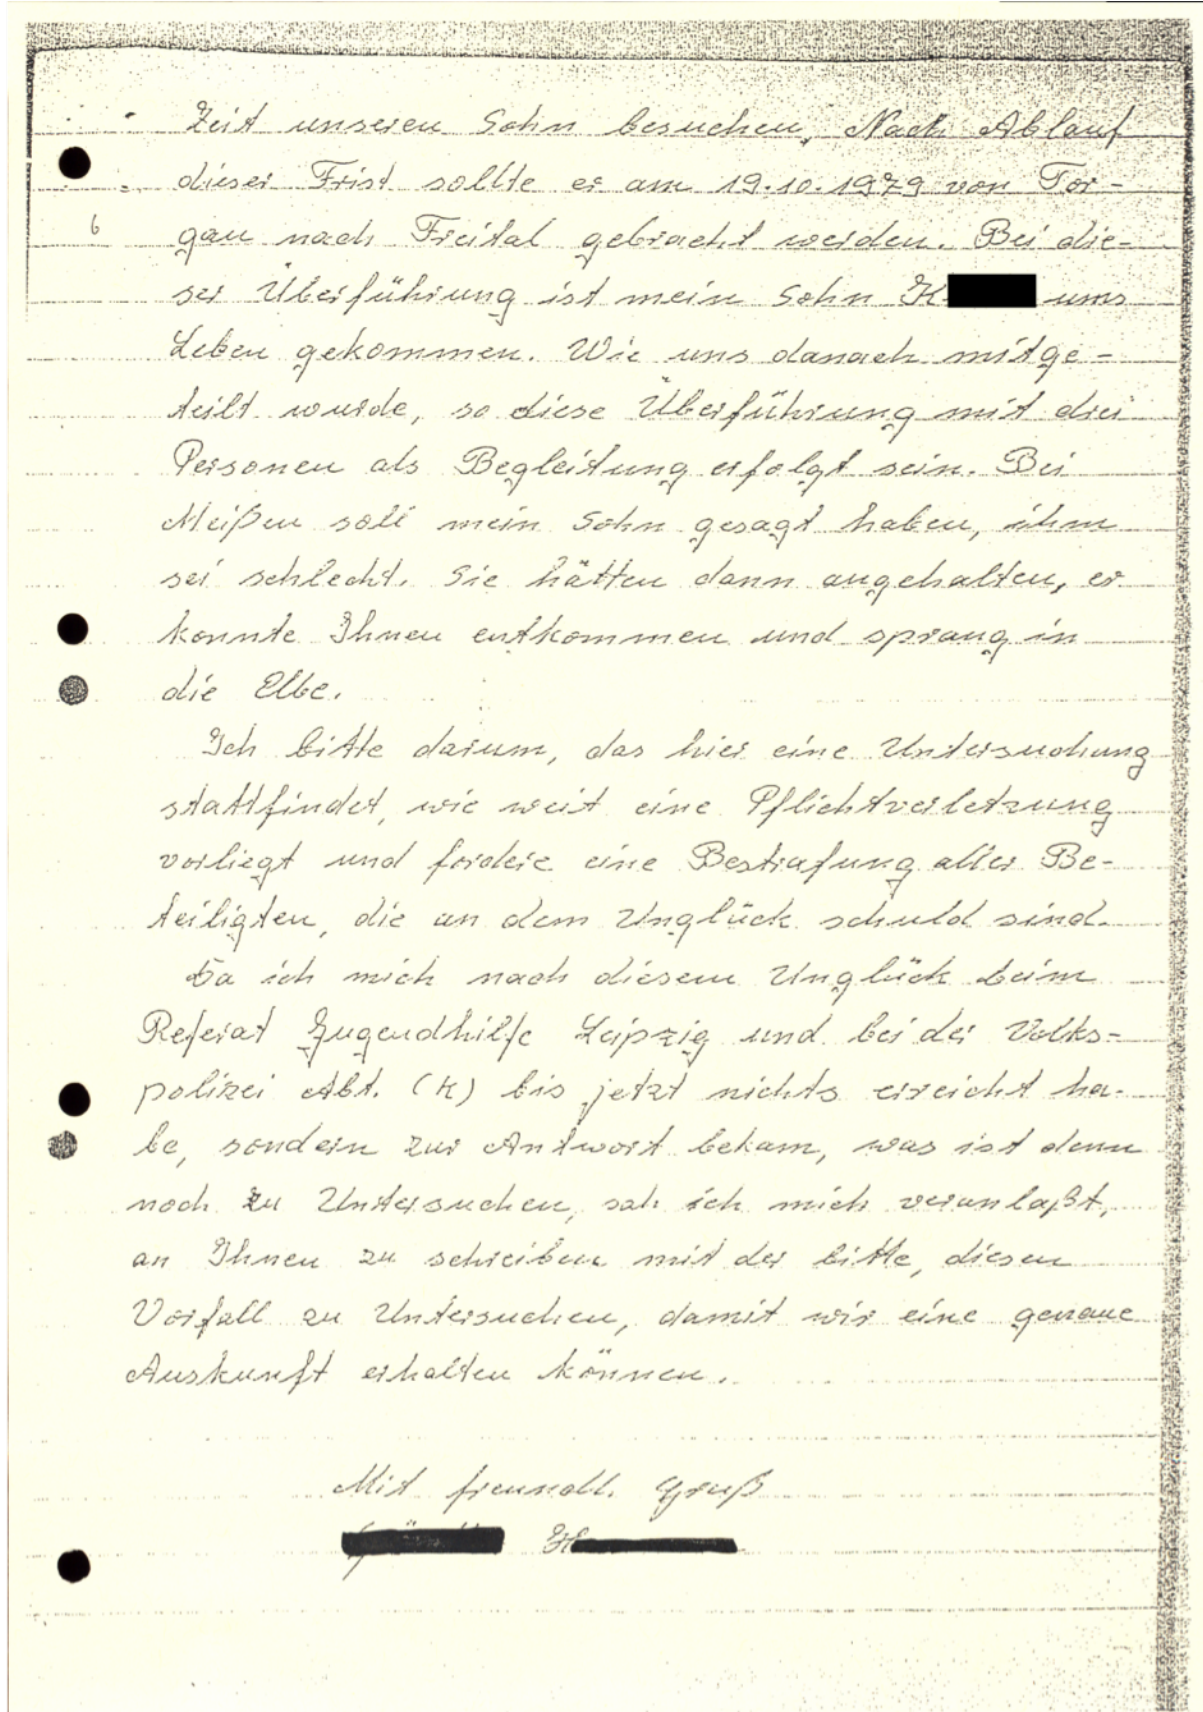 Zeit unseren Sohn besuchen. Nach Ablauf
dieser Frist sollte er am 19.10.1979 von Tor-
6 gau nach Freital gebracht werden. Bei die-
ser Überführung ist mein Sohn K ums
Leben gekommen. Wie uns danach mitge-
teilt wurde, so diese Überführung mit drei
Personen als Begleitung erfolgt sein. Bei
Meißen soll mein Sohn gesagt haben, ihm
sei schlecht. Sie hätten dann angehalten, er
konnte Ihnen entkommen und sprang in
die Elbe.
Ich bitte darum, das hier eine Untersuchung
stattfindet, wie weit eine Pflichtverletzung
vorliegt und fordere eine Bestrafung aller Be-
teiligten, die an dem Unglück schuld sind.
Da ich mich nach diesem Unglück beim
Referat Jugendhilfe Leipzig und bei der Volks-
polizei Abt. (K) bis jetzt nichts erreicht ha-
be, sondern zur Antwort bekam, was ist denn
noch zu Untersuchen, sah ich mich veranlaßt,
an Ihnen zu schreiben mit der bitte, diesen
Vorfall zu Untersuchen, damit wir eine genaue
Auskunft erhalten können.
Mit freundl. Gruß
H